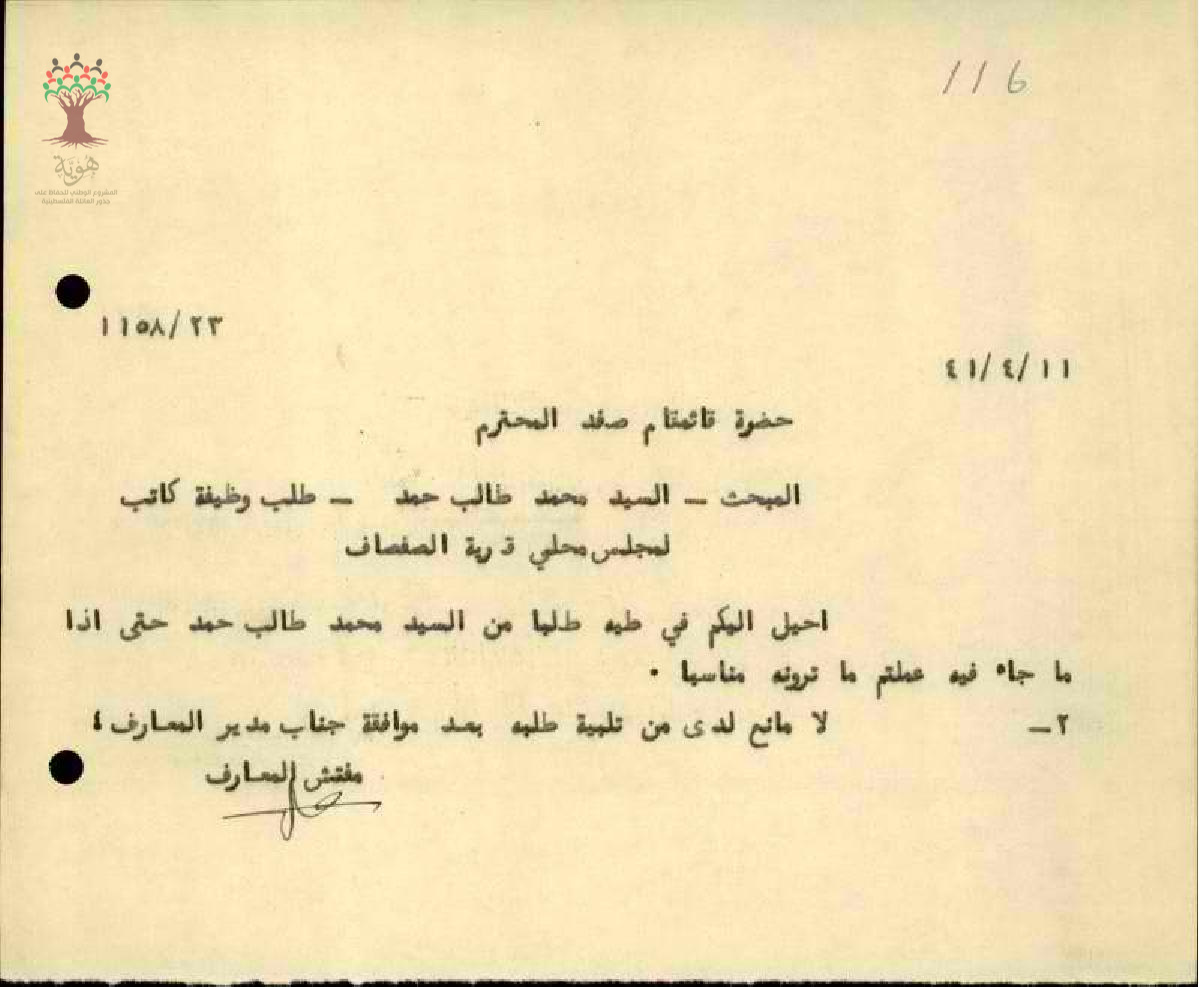 116
هوية
المشروع الوطني للحفاظ على
جذور العائلة الفلسطينية
١١٥٨/٢٣
٤١/٤/١١
حضرة قائمقام صفد المحترم
المبحث – السيد محمد طالب حمد – طلب وظيفة كاتب
لمجلس محلي قرية الصفصاف
احيل اليكم في طيه طلبا من السيد محمد طالب حمد حتى اذا
ما جاء فيه عملتم ما ترونه مناسبا .
٢– لا مانع لدى من تلبية طلبه بعد موافقة جناب مدير المعارف ؛
مفتش المعارف